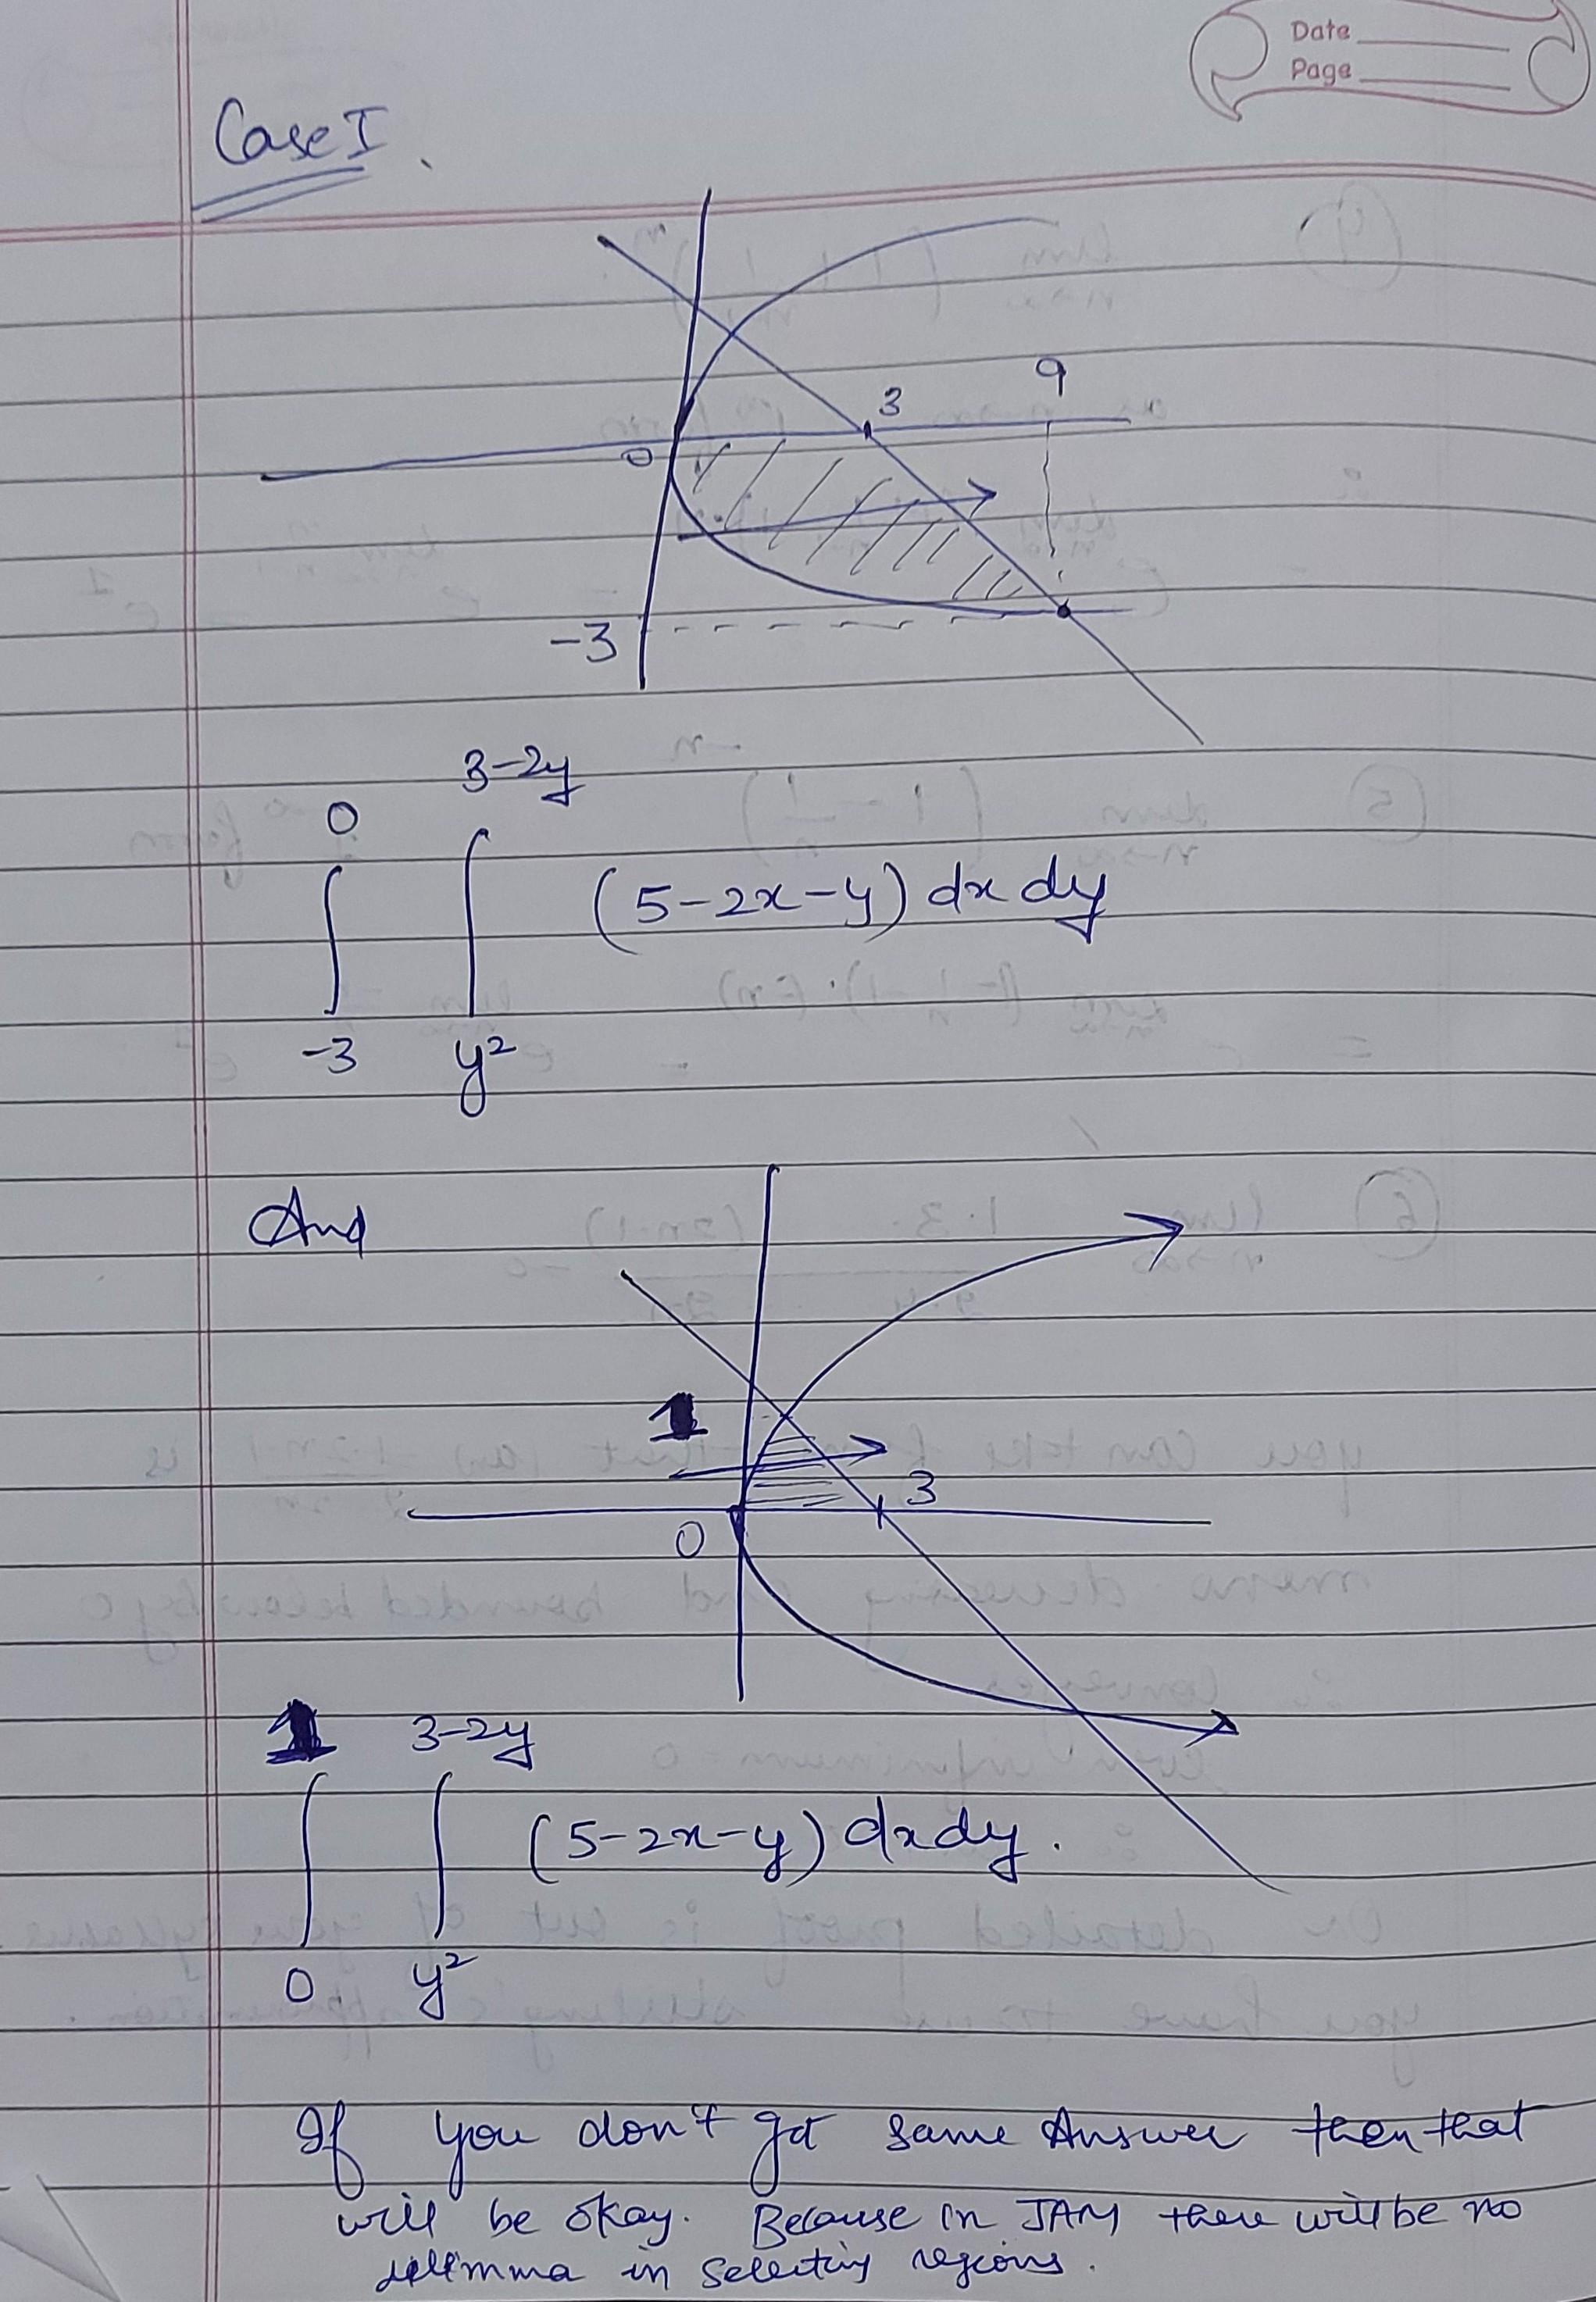 Date
Page
Case I.
9
3
0
-3
0 3-2y
∫ ∫ (5-2x-y) dx dy
-3 y²
And
1
3
0
1 3-2y
∫ ∫ (5-2x-y) dx dy.
0 y²
If you don't get same Answer then that
will be okay. Because in JAM there will be no
dilemma in selecting regions.